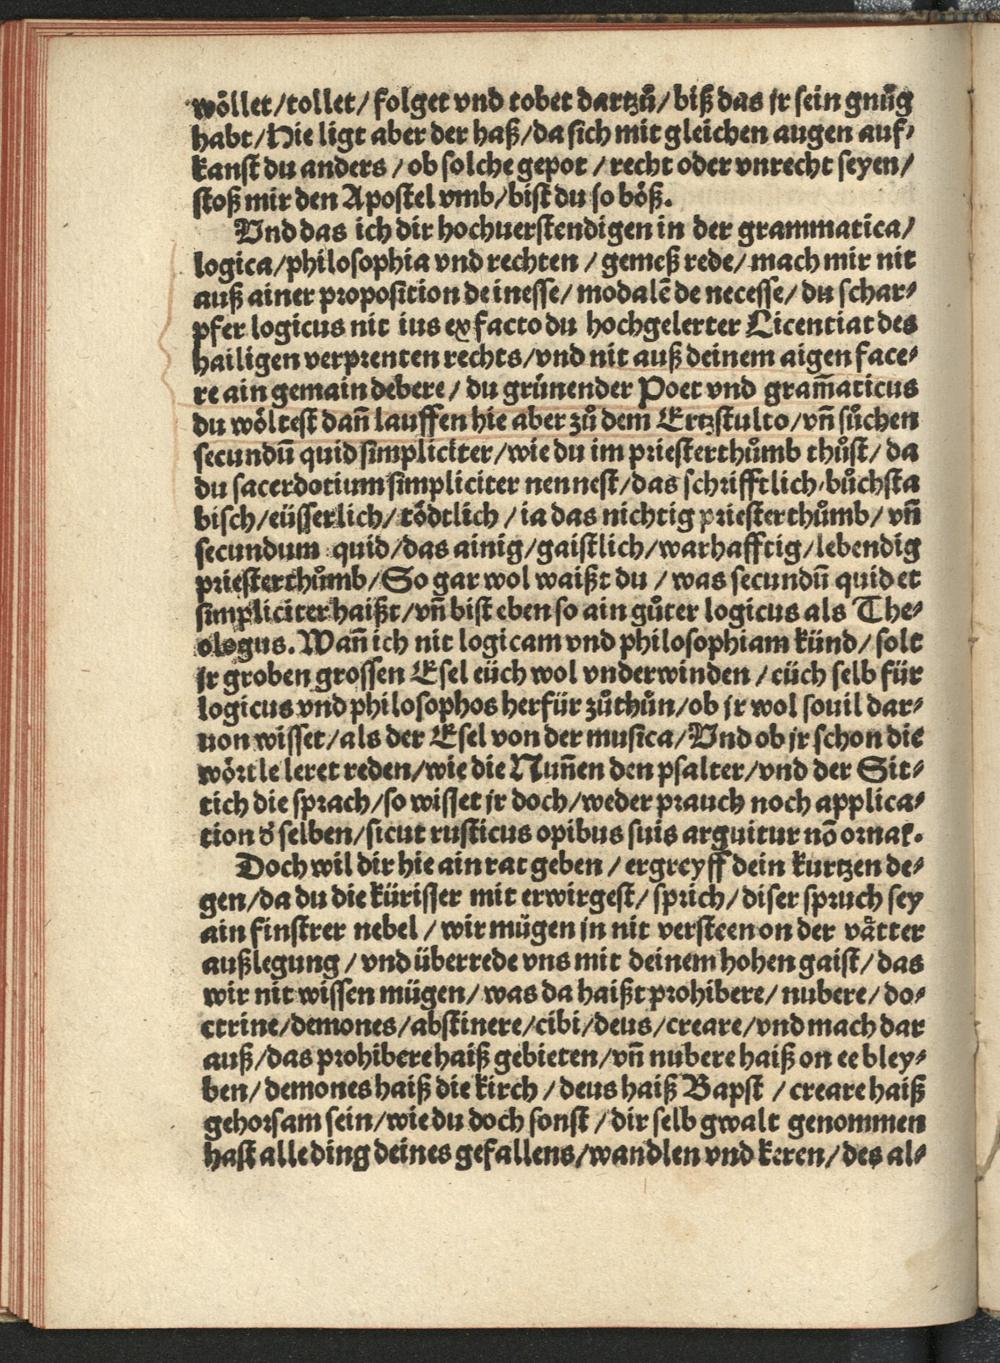 wöllet/tollet/folget vnd tobet dartzů/biß das jr sein gnůg
habt/Hie ligt aber der haß/da sich mit gleichen augen auf/
kanst du anders/ob solche gepot/recht oder vnrecht seyen/
stoß mir den Apostel vmb/bist du so böß.
Vnd das ich dir hochuerstendigen in der grammatica/
logica/philosophia vnd rechten/gemeß rede/mach mir nit
auß ainer proposition de inesse/modalē de necesse/du schar⸗
pfer logicus nit ius ex facto du hochgelerter Licentiat des
hailigen verprenten rechts/vnd nit auß deinem aigen face⸗
re ain gemain debere/du grünender Poet vnd gram̄aticus
du wöltest dañ lauffen hie aber zů dem Ertzstulto/vñ sůchen
secundū quid simpliciter/wie du im priesterthůmb thůst/da
du sacerdotium simpliciter nennest/das schrifftlich/bůchsta
bisch/eüsserlich/tödtlich/ia das nichtig priesterthůmb/vñ
secundum quid/das ainig/gaistlich/warhafftig/lebendig
priesterthůmb/So gar wol waißt du/was secundū quid et
simpliciter haißt/vñ bist eben so ain gůter logicus als The⸗
ologus. Wañ ich nit logicam vnd philosophiam künd/solt
jr groben grossen Esel eüch wol vnderwinden/eüch selb für
logicus vnd philosophos herfür zůthůn/ob jr wol souil dar⸗
uon wisset/als der Esel von der musica/Vnd ob jr schon die
wörtle leret reden/wie die Nuñen den psalter/vnd der Sit⸗
tich die sprach/so wisset jr doch/weder prauch noch applica⸗
tion d̓ selben/sicut rusticus opibus suis arguitur nō ornat̄.
Doch wil dir hie ain rat geben/ergreyff dein kurtzen de⸗
gen/da du die kürisser mit erwirgest/sprich/diser spruch sey
ain finstrer nebel/wir mügen jn nit versteen on der våtter
außlegung/vnd überrede vns mit deinem hohen gaist/das
wir nit wissen mügen/was da haißt prohibere/nubere/do⸗
ctrine/demones/abstinere/cibi/deus/creare/vnd mach dar
auß/das prohibere haiß gebieten/vñ nubere haiß on ee bley⸗
ben/demones haiß die kirch/deus haiß Bapst/creare haiß
gehorsam sein/wie du doch sonst/dir selb gwalt genommen
hast alle ding deines gefallens/wandlen vnd keren/des al⸗